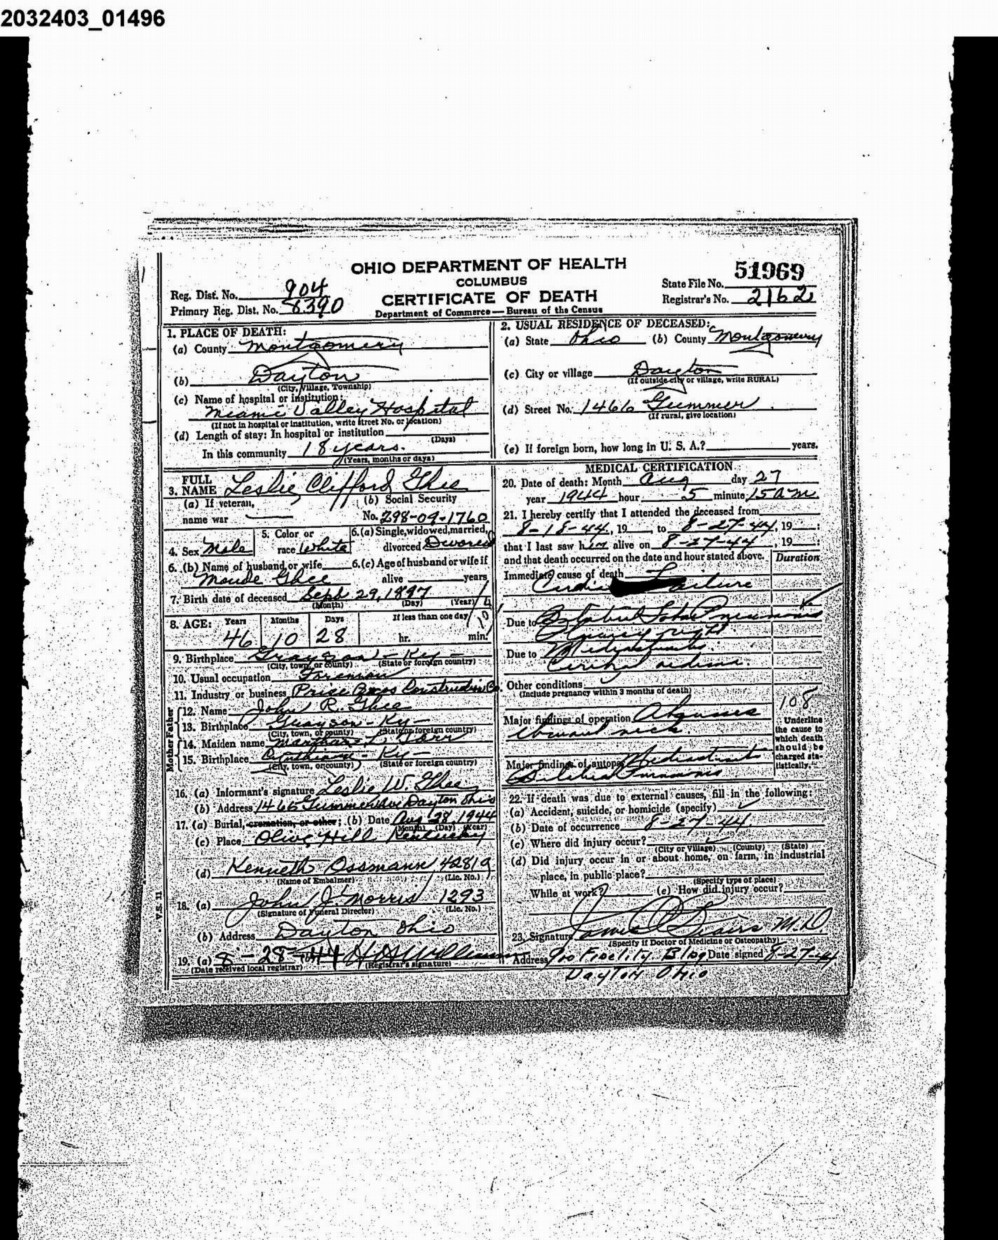 2032403_01496
OHIO DEPARTMENT OF HEALTH
COLUMBUS
CERTIFICATE OF DEATH
Department of Commerce — Bureau of the Census
Reg. Dist. No. 904
Primary Reg. Dist. No. 8390
State File No. 51969
Registrar's No. 2162
1. PLACE OF DEATH:
(a) County Montgomery
(b) Dayton
(City, Village, Township)
(c) Name of hospital or institution:
Miami Valley Hospital
(If not in hospital or institution, write street No. or location)
(d) Length of stay: In hospital or institution
(Days)
In this community 18 years.
(Years, months or days)
2. USUAL RESIDENCE OF DECEASED:
(a) State Ohio (b) County Montgomery
(c) City or village Dayton
(If outside city or village, write RURAL)
(d) Street No. 1466
(If rural, give location)
(e) If foreign born, how long in U. S. A.? years.
3. FULL NAME Leslie Clifford Ghee
(a) If veteran, name war
(b) Social Security No. 298-09-1760
4. Sex Male
5. Color or race White
6. (a) Single, widowed, married, divorced Divorced
6. (b) Name of husband or wife
Maude Ghee
6. (c) Age of husband or wife if alive years
7. Birth date of deceased Sept 29, 1897
(Month) (Day) (Year)
8. AGE: Years Months Days If less than one day
46 10 28 hr. min.
9. Birthplace Grayson - Ky -
(City, town, or county) (State or foreign country)
10. Usual occupation Foreman
11. Industry or business Price Bros Construction Co.
Father
12. Name John R. Ghee
13. Birthplace Grayson - Ky -
(City, town, or county) (State or foreign country)
Mother
14. Maiden name Martha
15. Birthplace Ky -
(City, town, or county) (State or foreign country)
16. (a) Informant's signature Leslie W. Ghee
(b) Address 1466 Ave Dayton Ohio
17. (a) Burial, cremation, or other; (b) Date Aug 28, 1944
(Month) (Day) (Year)
(c) Place Olive Hill Kentucky
(d) Kenneth Ossmann 4281 9
(Name of Embalmer) (Lic. No.)
18. (a) John J. Morris 1293
(Signature of Funeral Director) (Lic. No.)
(b) Address Dayton Ohio
19. (a) 8-28-44
(Date received local registrar) (Registrar's signature)
V.S. 11
MEDICAL CERTIFICATION
20. Date of death: Month Aug day 27
year 1944 hour 5 minute 15 A M.
21. I hereby certify that I attended the deceased from
8-18-44, 19 to 8-27-44, 19 ;
that I last saw him alive on 8-27-44, 19 ;
and that death occurred on the date and hour stated above. Duration
Immediate cause of death
Failure
Due to Bilateral Lobar Pneumonia
Due to
Other conditions
(Include pregnancy within 3 months of death)
Major findings of operation
108
Major findings of autopsy
Underline the cause to which death should be charged statistically.
22. If death was due to external causes, fill in the following:
(a) Accident, suicide, or homicide (specify)
(b) Date of occurrence 8-27-44
(c) Where did injury occur?
(City or Village) (County) (State)
(d) Did injury occur in or about home, on farm, in industrial
place, in public place?
(Specify type of place)
While at work? (e) How did injury occur?
23. Signature M.D
(Specify if Doctor of Medicine or Osteopathy)
Address Fidelity Bldg Date signed 8-27-44
Dayton Ohio